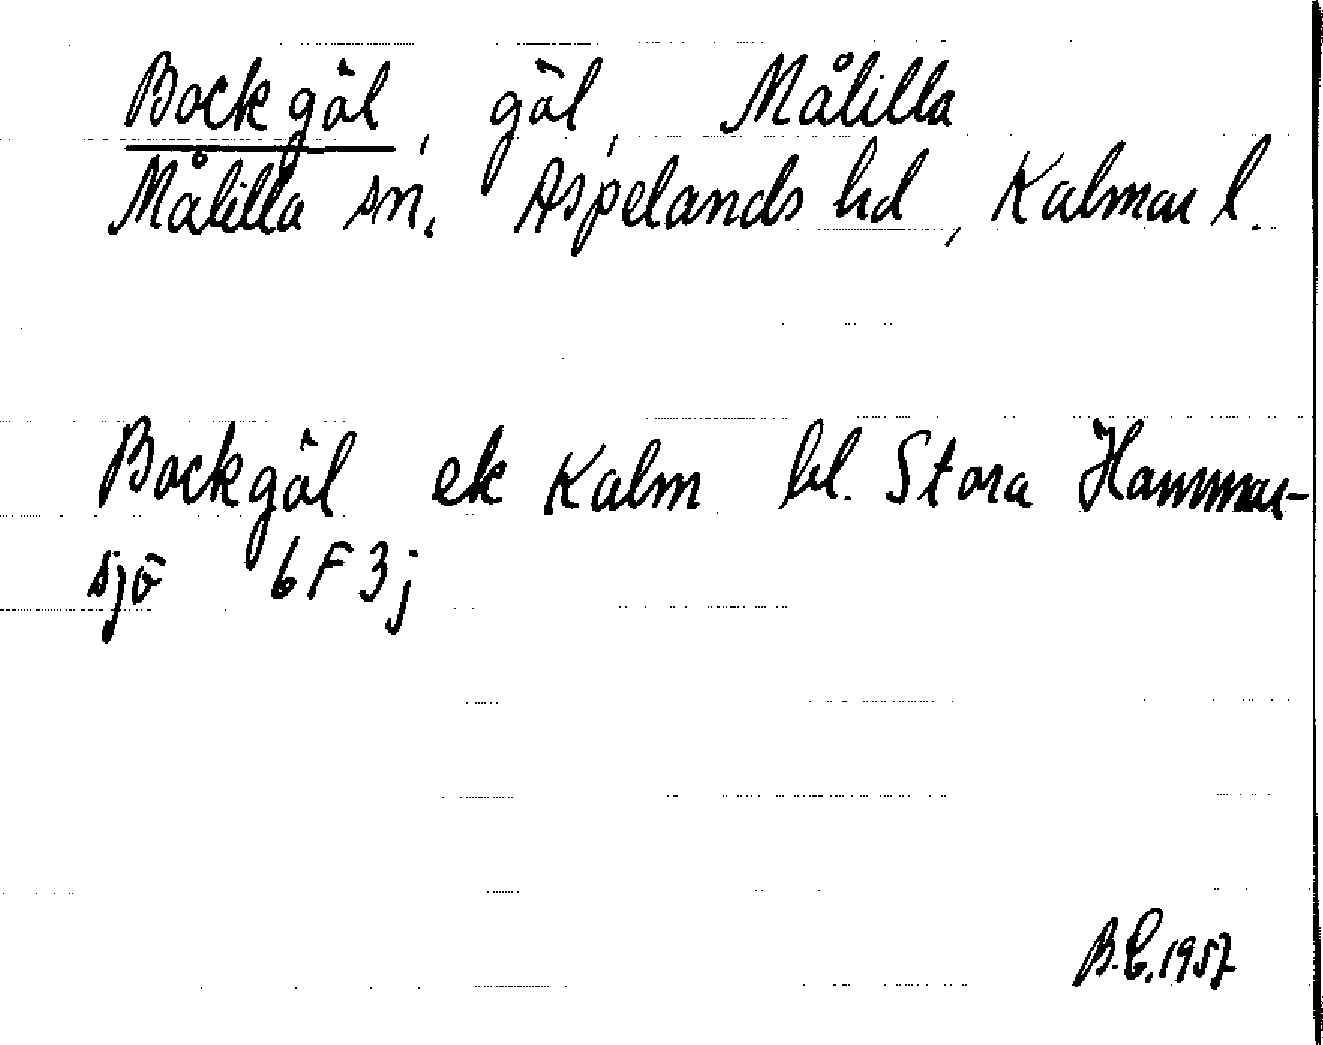 Bockgöl, göl, Målilla
Målilla sn, Aspelands hd, Kalmar l.
Bockgöl ek Kalm bl. Stora Hammar-
sjö 6F3j
B.E. 1957